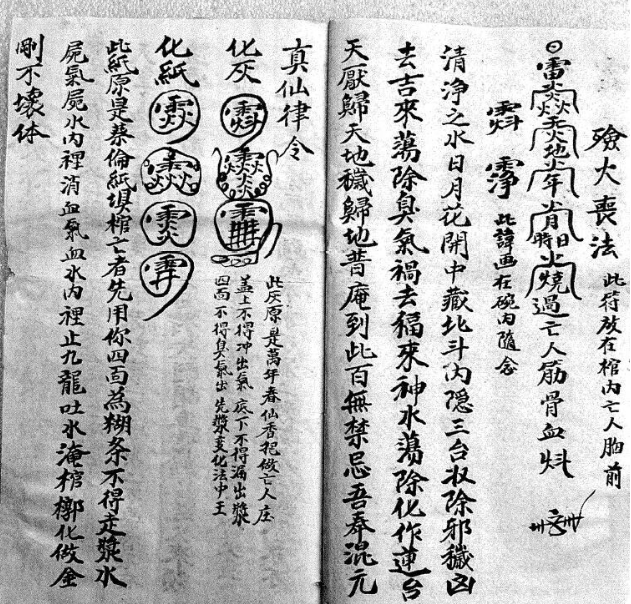 殮大喪法 此符放在棺內亡人胸前
日雷火燒天火燒地火燒年火燒月火燒日火燒時火燒過亡人筋骨血
此諱画在碗內隨念
清淨之水日月花開中藏北斗內隱三台收除邪穢凶
去吉來蕩除臭氣禍去福來神水蕩除化作蓮台
天厭歸天地穢歸地普庵到此百無禁忌吾奉混元
真仙律令
化灰
此灰原是萬年春仙香把做亡人庄
盖上不得冲出氣 底下不得漏出漿
四面不得臭氣出 先漿变化法中王
化紙
此紙原是蔡倫紙填棺亡者先用你四面為糊条不得走漿水
屍氣屍水內裡消血氣血水內裡止九龍吐水淹棺槨化做金
剛不壞体